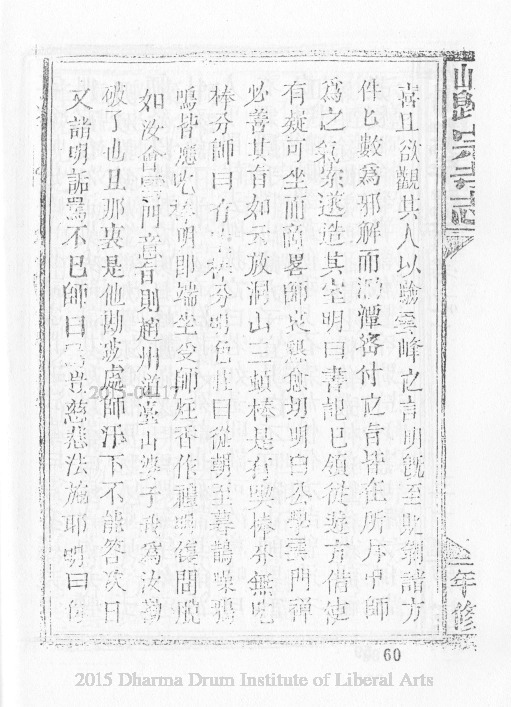 喜且欲觀其人以驗雲峰之言明既至貶剝諸方
件匕數為邪解而泐潭密付之旨皆在所斥中師
為之氣索遂造其室明曰書記已領徒遊方借使
有疑可坐而商畧師哀懇愈切明曰公學雲門禪
必善其旨如云放洞山三頓棒是有喫棒分無喫
棒分師曰有喫棒分明色莊曰從朝至暮鵲噪鴉
鳴皆應吃棒明即端坐受師炷香作禮明復問脫
如汝會雲門意旨則趙州道臺山婆子我為汝勘
破了也且那裏是他勘破處師汗下不能答次日
又詣明詬罵不已師曰罵豈慈悲法施耶明曰
年修
60
2015 Dharma Drum Institute of Liberal Arts